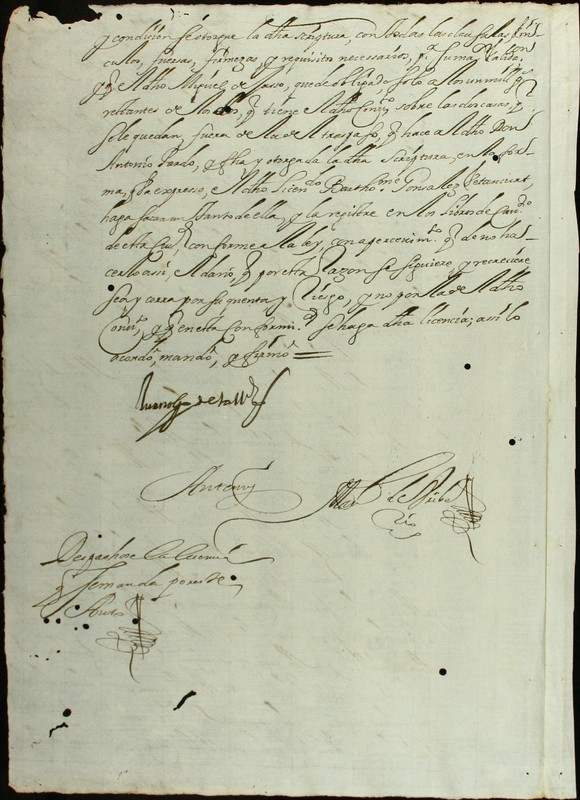 y condición se otorgue la dha scriptura, con todas las clausulas, vin-
culos, fuersas, firmezas, y requisitos necessarios, pª su mayor validon.
y ql dho Miguel de solo a los un mill ps.
restantes de q tiene el dho Convto sobre las dos casas, q
se le quedan, fuera de la de el trespaso, q hace a el dho Don
Antonio Pardo, y fha y otorgada la dha scriptura, en la for-
ma, q ba expreso, el dho Licendo Barthme Gonsalez Betancurt,
haga sacar un tanto de ella, y la registre en los libros de Cavdo
de esta Ciud conforme a la ley, con apercevimto q de no ha-
cerlo assi, el daño, q por esta razon se siguiere, y recreciere
sea y corra por su quenta y riesgo, y no por la de el dho
Convto, y q en esta conformd se haga dha licencia; assi lo
acordó, mandó, y firmó
Ante my
Despachose la licencia
q se manda por este
Auto